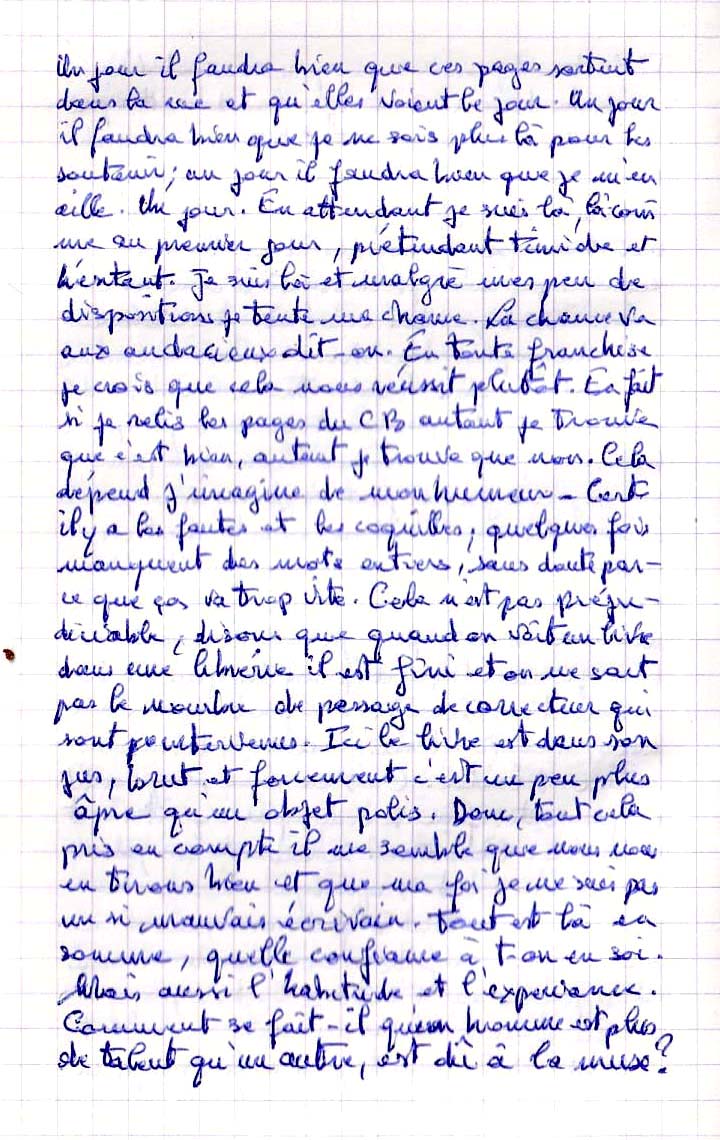 Un jour il faudra bien que ces pages sortent
dans la rue et qu'elles voient le jour. Un jour
il faudra bien que je ne sois plus là pour les
soutenir; un jour il faudra bien que je m'en
aille. Un jour. En attendant je suis là, là com
me au premier jour, prétendant timide et
hésitant. Je suis là et malgré mes peu de
dispositions je tente ma chance. La chance va
aux audacieux dit-on. En toute franchise
je crois que cela nous réussit plutôt. En fait
si je relis les pages du CB autant je trouve
que c'est bien, autant je trouve que non. Cela
dépend j'imagine de mon humeur - Certe
il y a les fautes et les coquilles, quelques fois
manquent des mots entiers, sans doute par-
ce que ça va trop vite. Cela n'est pas préju-
diciable, disons que quand on voit un livre
dans une librerie il est fini et on ne sait
pas le nombre de passage de correcteur qui
sont intervenus. Ici le livre est dans son
jus, brut et forcement c'est un peu plus
âpre qu'un objet polis. Donc, tout cela
pris en compte il me semble que nous nous
en tirons bien et que ma foi je ne suis pas
un si mauvais écrivain. Tout est là en
somme, quelle confiance à t-on en soi.
Mais aussi l'habitude et l'experiance.
Comment se fait-il qu'un homme est plus
de talent qu'un autre, est dû à la muse?